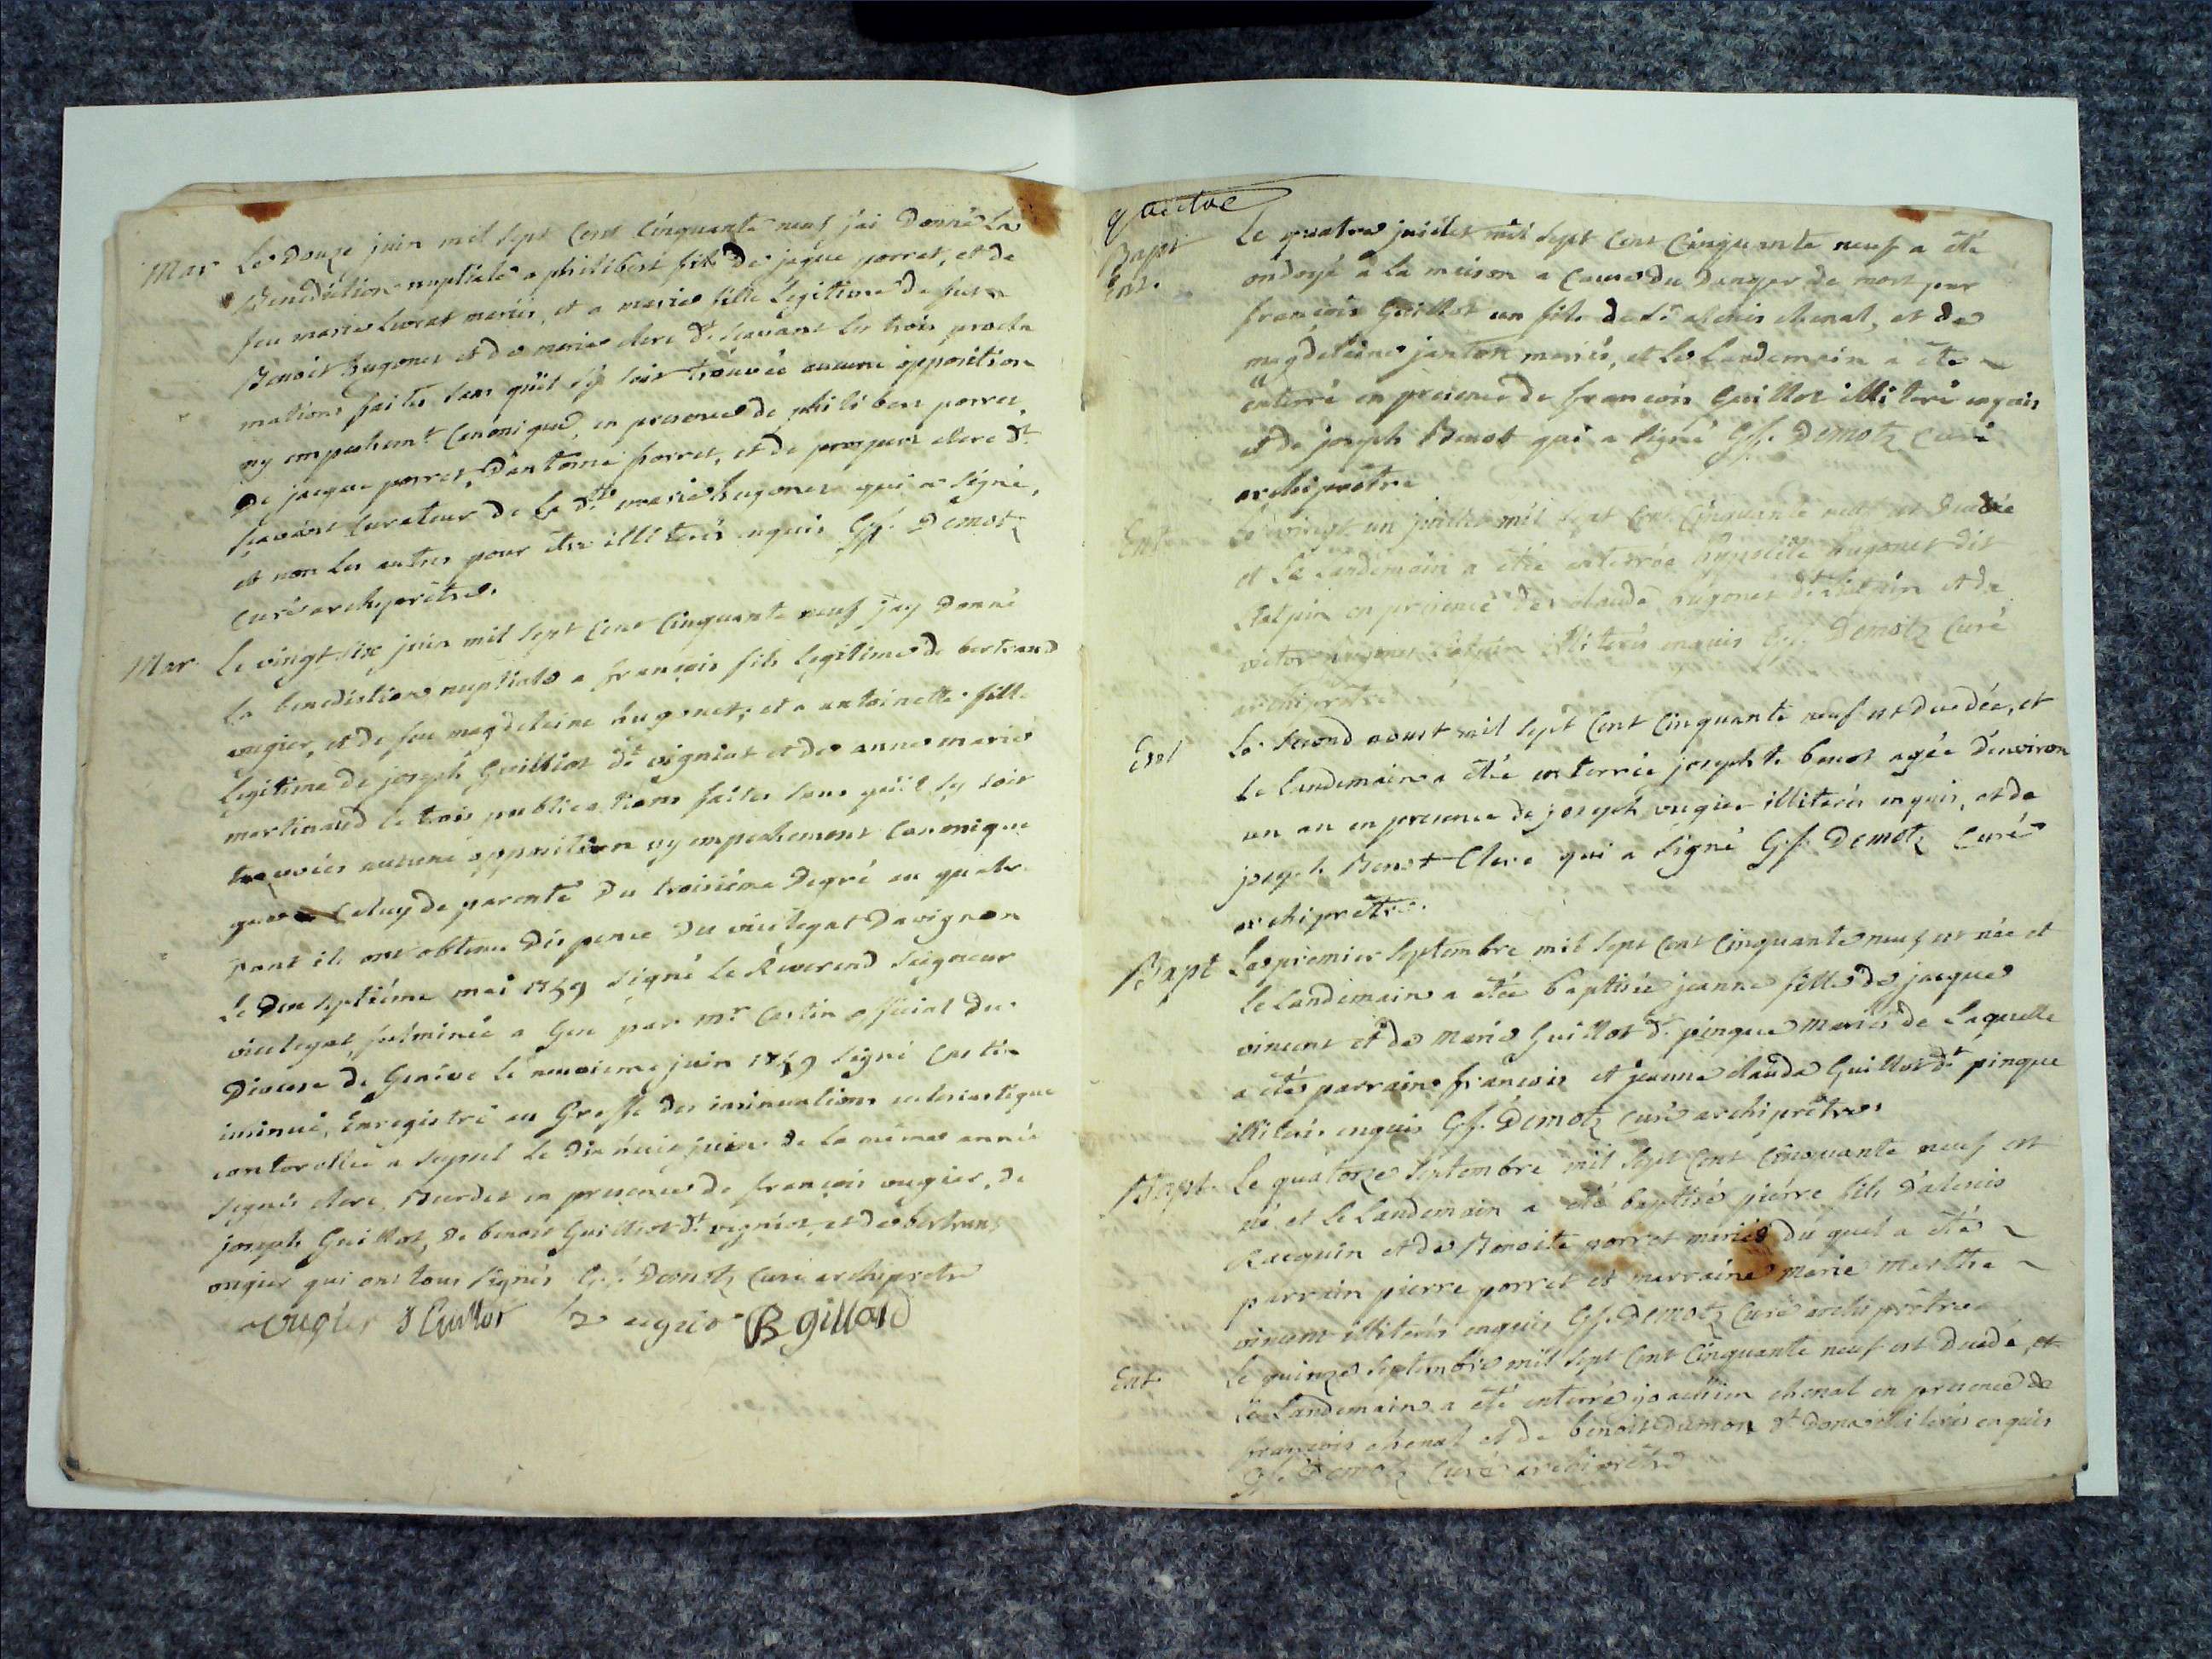 Mar Le Douze juin mil sept Cent Cinquante neuf j'ai Donné La
Benediction nuptiale a philibert fils de jaque porret, et de
feu marie mariés, et a marie fille Legitime de feu
Benoit hugonet et de marie clerc dt scavant les trois procla
mations faites sans qu'il s'y soit trouvée aucune opposition
ny empechemt Canonique, en presence de philibert porret,
De jacque porret, D'antoine porret, et de prosper clerc dt
scavant curateur de la dte marie hugonet qui a signé,
et non les autres pour être illiterés enquis Gf. Demotz
Curé archiprêtre.
Mar Le vingt six juin mil sept Cent Cinquante neuf j'ay Donné
La benediction nuptiale a françois fils legitime de bertrand
vugier, et de feu magdeleine hugonet; et a antoinette fille
Legitime de joseph Guilliot dt vigniat et de anne marie
martinand le trois publications faites sans qu'il sy soit
trouvées aucune opposition ny empechement Canonique
que Celuy de parenté du troisiéme Degré au quatr
Dont ils ont obtenu Dispence Du vicelegat Davignon
Le Dix septiéme mai 1759 signé Le Reverend Seigneur
vicelegat, fulminée a Gex par mr Castin official du
Diocese de Genéve le neuvieme juin 1759 signé Castin
insinué, Enregistré au Greffe des insinuations eclesiastique
controllée a seyssel le Dix neuf juin de la même année
signés clerc, Burdet en presence de françois vugier, de
joseph Guillot, de benoit Guilliot dt vigniat, et de bertrand
vugier qui ont tous signés Gf. Demotz Curé archiprêtre
vugier B gillord
quatre
Bapt Le quatre juillet mil sept Cent Cinquante neuf a été
Ent. ondoyé à la maison a Cause du Danger de mort par
françois Guillot un fils de Sr alexis chenal, et de
magdeleine janton mariés, et le landemain a été
enterré en presence de françois Guillot illiteré enquis
et de joseph Benot qui a signé Gf. Demotz curé
archiprêtre
Ent Le vingt un juillet mil sept Cent Cinquante neuf est Decedée
et Le Landemain a été enterrée hypolite hugonet dit
en presence de claude hugonet dt et de
victor hugonet illiterés enquis Gf. Demotz Curé
archiprêtre
Ent Le second aoust mil sept Cent Cinquante neuf est decedée, et
Le landemain a étée enterrée josephte benot agée d'environ
un an en presence de joseph vugier illiterés enquis, et de
joseph Benot Clerc qui a signé Gf. Demotz Curé
archiprêtre.
Bapt Le premier septembre mil sept Cent Cinquante neuf est née et
le landemain a étée baptisée jeanne fille de jacque
vincent et de Marie Guillot dt pinque mariés de Laquelle
a étés parrains françois et jeanne clauda Guillot dt pinque
illiterés enquis Gf. Demotz Curé archiprêtre
Bapt. Le quatorze septembre mil sept Cent Cinquante neuf est
né et le landemain a été baptisé piérre fils d'alexis
Racquin et de Benoite porret mariés du quel a été
parrain pierre porret et marraine marie Marthe
vincent illiterés enquis Gf. Demotz Curé archiprêtre
Ent. Le quinze septembre mil sept Cent Cinquante neuf est Decedé, et
Le Landemain a été enterré joachim chenal en presence de
françois chenal et de benoit Dumon dt illiterés enquis
Gf. Demotz Curé archiprêtre